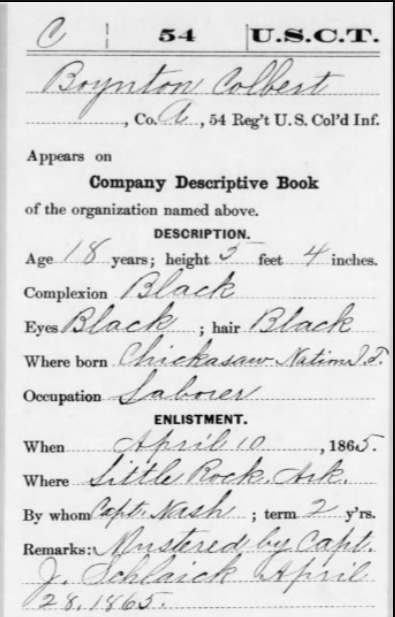 C 54 U.S.C.T.
Boynton Colbert
, Co. A, 54 Reg't U.S. Col'd Inf.
Appears on
Company Descriptive Book
of the organization named above.
DESCRIPTION.
Age 18 years; height 5 feet 4 inches.
Complexion Black
Eyes Black ; hair Black
Where born Chickasaw Nation I.T.
Occupation Laborer
ENLISTMENT.
When April 10 , 1865.
Where Little Rock, Ark.
By whom Capt. Nash ; term 2 y'rs.
Remarks: Mustered by Capt.
J. Schlaick April
28, 1865.